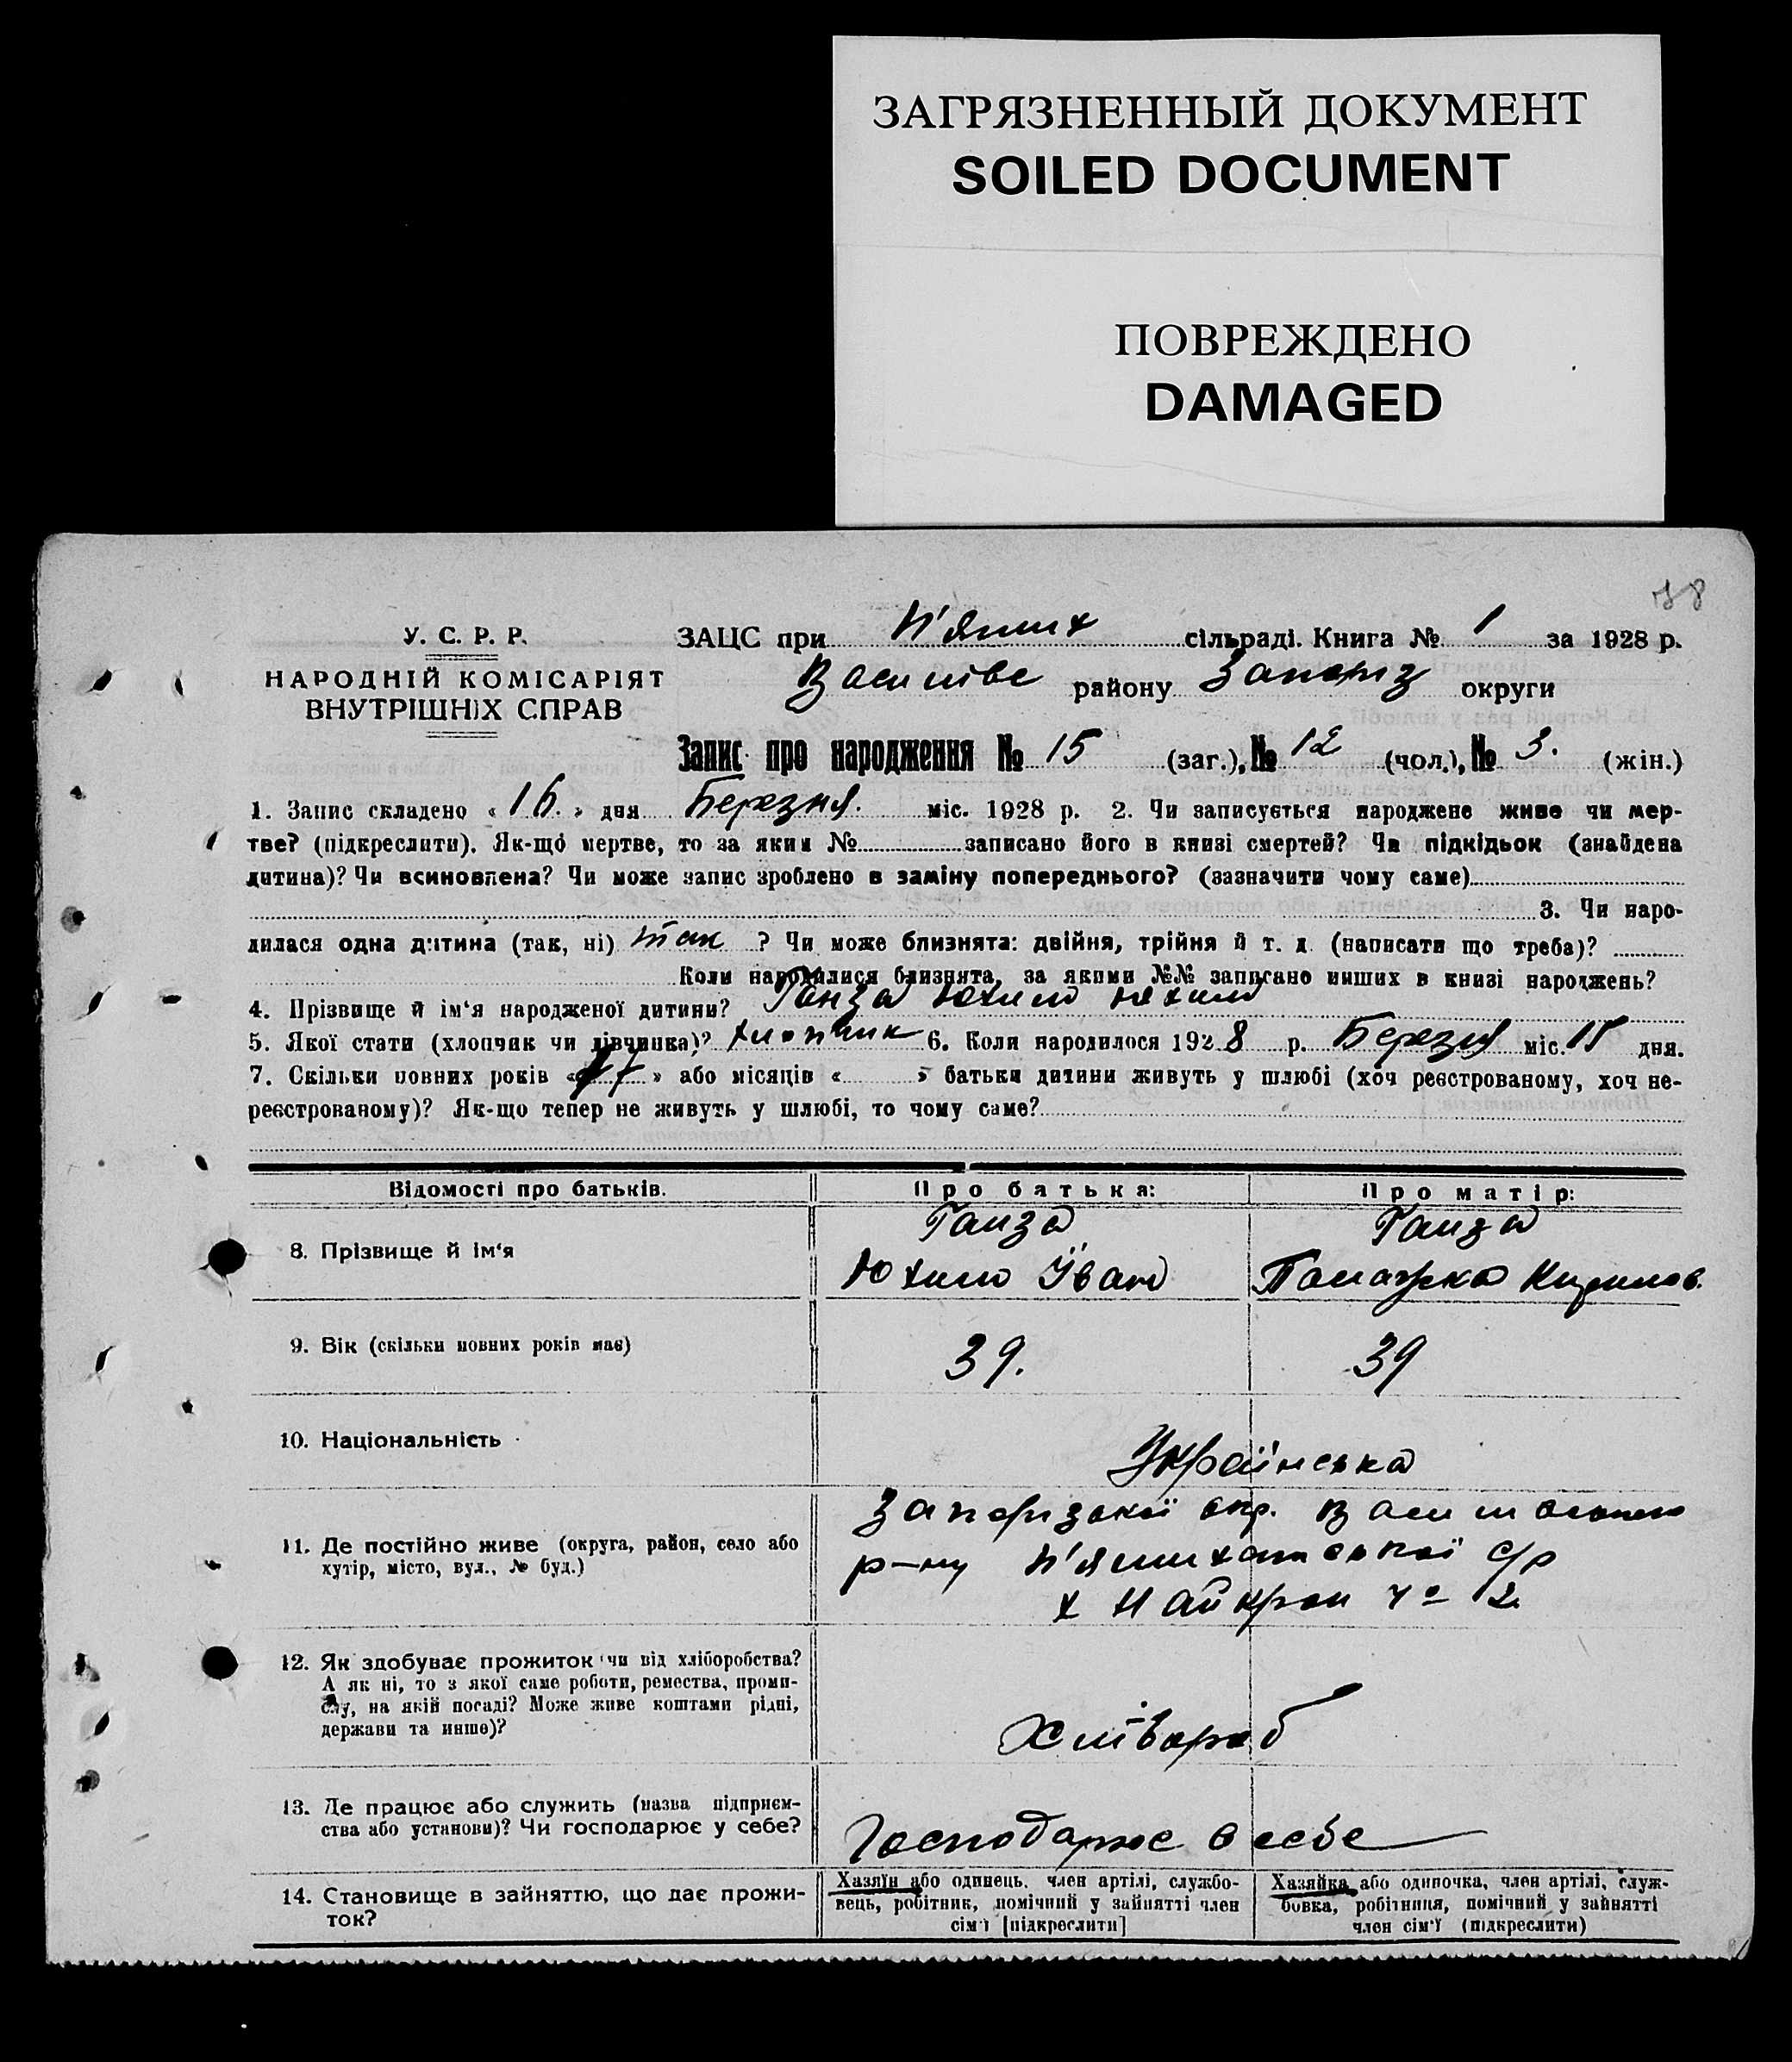 ЗАГРЯЗНЕННЫЙ ДОКУМЕНТ
SOILED DOCUMENT
ПОВРЕЖДЕНО
DAMAGED
38
У. С. Р. Р.
НАРОДНІЙ КОМІСАРІЯТ
ВНУТРІШНІХ СПРАВ
ЗАЦС при П'ятих сільраді. Книга № 1 за 1928 р.
Василівс району Запоріз округи
Запис про народження № 15 (заг.), № 12 (чол.), № 3. (жін.)
1. Запис складено « 16. » дня Березня. міс. 1928 р. 2. Чи записується народжене живе чи мер-
тве? (підкреслити). Як-що мертве, то за яким № записано його в книзі смертей? Чи підкідьок (знайдена
дитина)? Чи всиновлена? Чи може запис зроблено в заміну попереднього? (зазначити чому саме)
3. Чи наро-
дилася одна дитина (так, ні) так ? Чи може близнята: двійня, трійня й т. д. (написати що треба)?
Коли народилися близнята, за якими №№ записано инших в книзі народжень?
4. Прізвище й ім'я народженої дитини? Ганза
5. Якої стати (хлопчик чи дівчинка)? хлопчик 6. Коли народилося 1928 р. Березня міс. 15 дня.
7. Скільки повних років « » або місяців « » батьки дитини живуть у шлюбі (хоч реєстрованому, хоч не-
реєстрованому)? Як-що тепер не живуть у шлюбі, то чому саме?
Відомості про батьків. Про батька: Про матір:
Ганза Ганза
8. Прізвище й ім'я
Юхим Іван
9. Вік (скільки повних років має) 39. 39
10. Національність
Українська
Запорізької окр.
11. Де постійно живе (округа, район, село або
хутір, місто, вул., № буд.)
р-ну П'ятихатської с/р
х Найкрон ч= 2
12. Як здобуває прожиток чи від хліборобства?
А як ні, то з якої саме роботи, ремества, проми-
слу, на якій посаді? Може живе коштами рідні,
держави та инше)?
Хлібороб
13. Де працює або служить (назва підприєм-
ства або установи)? Чи господарює у себе?
Господарює в себе
14. Становище в зайняттю, що дає прожи-
ток?
Хазяїн або одинець, член артілі, службо-
вець, робітник, помічний у зайнятті член
сім'ї [підкреслити]
Хазяйка або одиночка, член артілі, служ-
бовка, робітниця, помічний у зайнятті
член сім'ї (підкреслити)